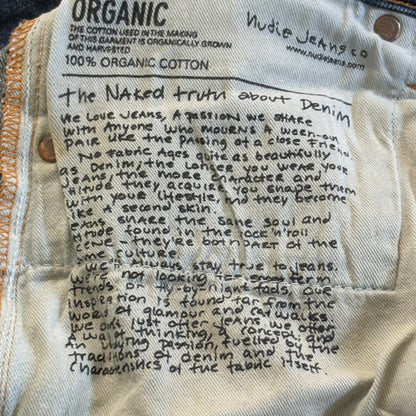 ORGANIC
THE COTTON USED IN THE MAKING
OF THIS GARMENT IS ORGANICALLY GROWN
AND HARVESTED
100% ORGANIC COTTON
Nudie Jeans co
www.nudiejeans.com
the NAKED truth about DENIM
WE LOVE JEANS, A PASSION WE SHARE
WITH ANYONE WHO MOURNS A WORN-OUT
PAIR LIKE THE PASSING OF A CLOSE FRIEND
NO FABRIC AGES QUITE AS BEAUTIFULLY
AS DENIM, THE LONGER YOU WEAR YOUR
JEANS, THE MORE CHARACTER AND
ATTITUDE THEY ACQUIRE. YOU SHAPE THEM
WITH YOUR LIFESTYLE, AND THEY BECOME
LIKE A SECOND SKIN
JEANS SHARE THE SAME SOUL AND
ATTITUDE FOUND IN THE ROCK'N'ROLL
THEY'RE BOTH PART OF THE
SAME CULTURE
ALWAYS STAY TRUE TO JEANS.
WE'RE NOT LOOKING TO TERM
TRENDS OR FLY-BY-NIGHT FADS. OUR
INSPIRATION IS FOUND FAR FROM THE
WORLD OF GLAMOUR AND CATWALKS
WE DON'T JUST OFFER JEANS, WE OFFER
A WAY OF THINKING, A CONCEPT AND
AN UNDYING PASSION, FUELLED BY THE
TRADITIONS OF DENIM AND THE
CHARACTERISTICS OF THE FABRIC ITSELF.